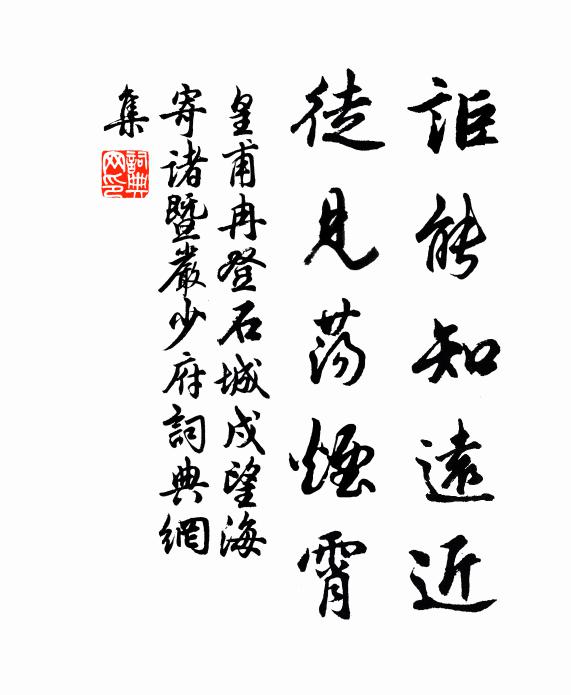 詎能知遠近
徒見蕩煙霄
皇甫冉登石城戍望海
寄諸暨嚴少府詞典網
集
詞典
网印